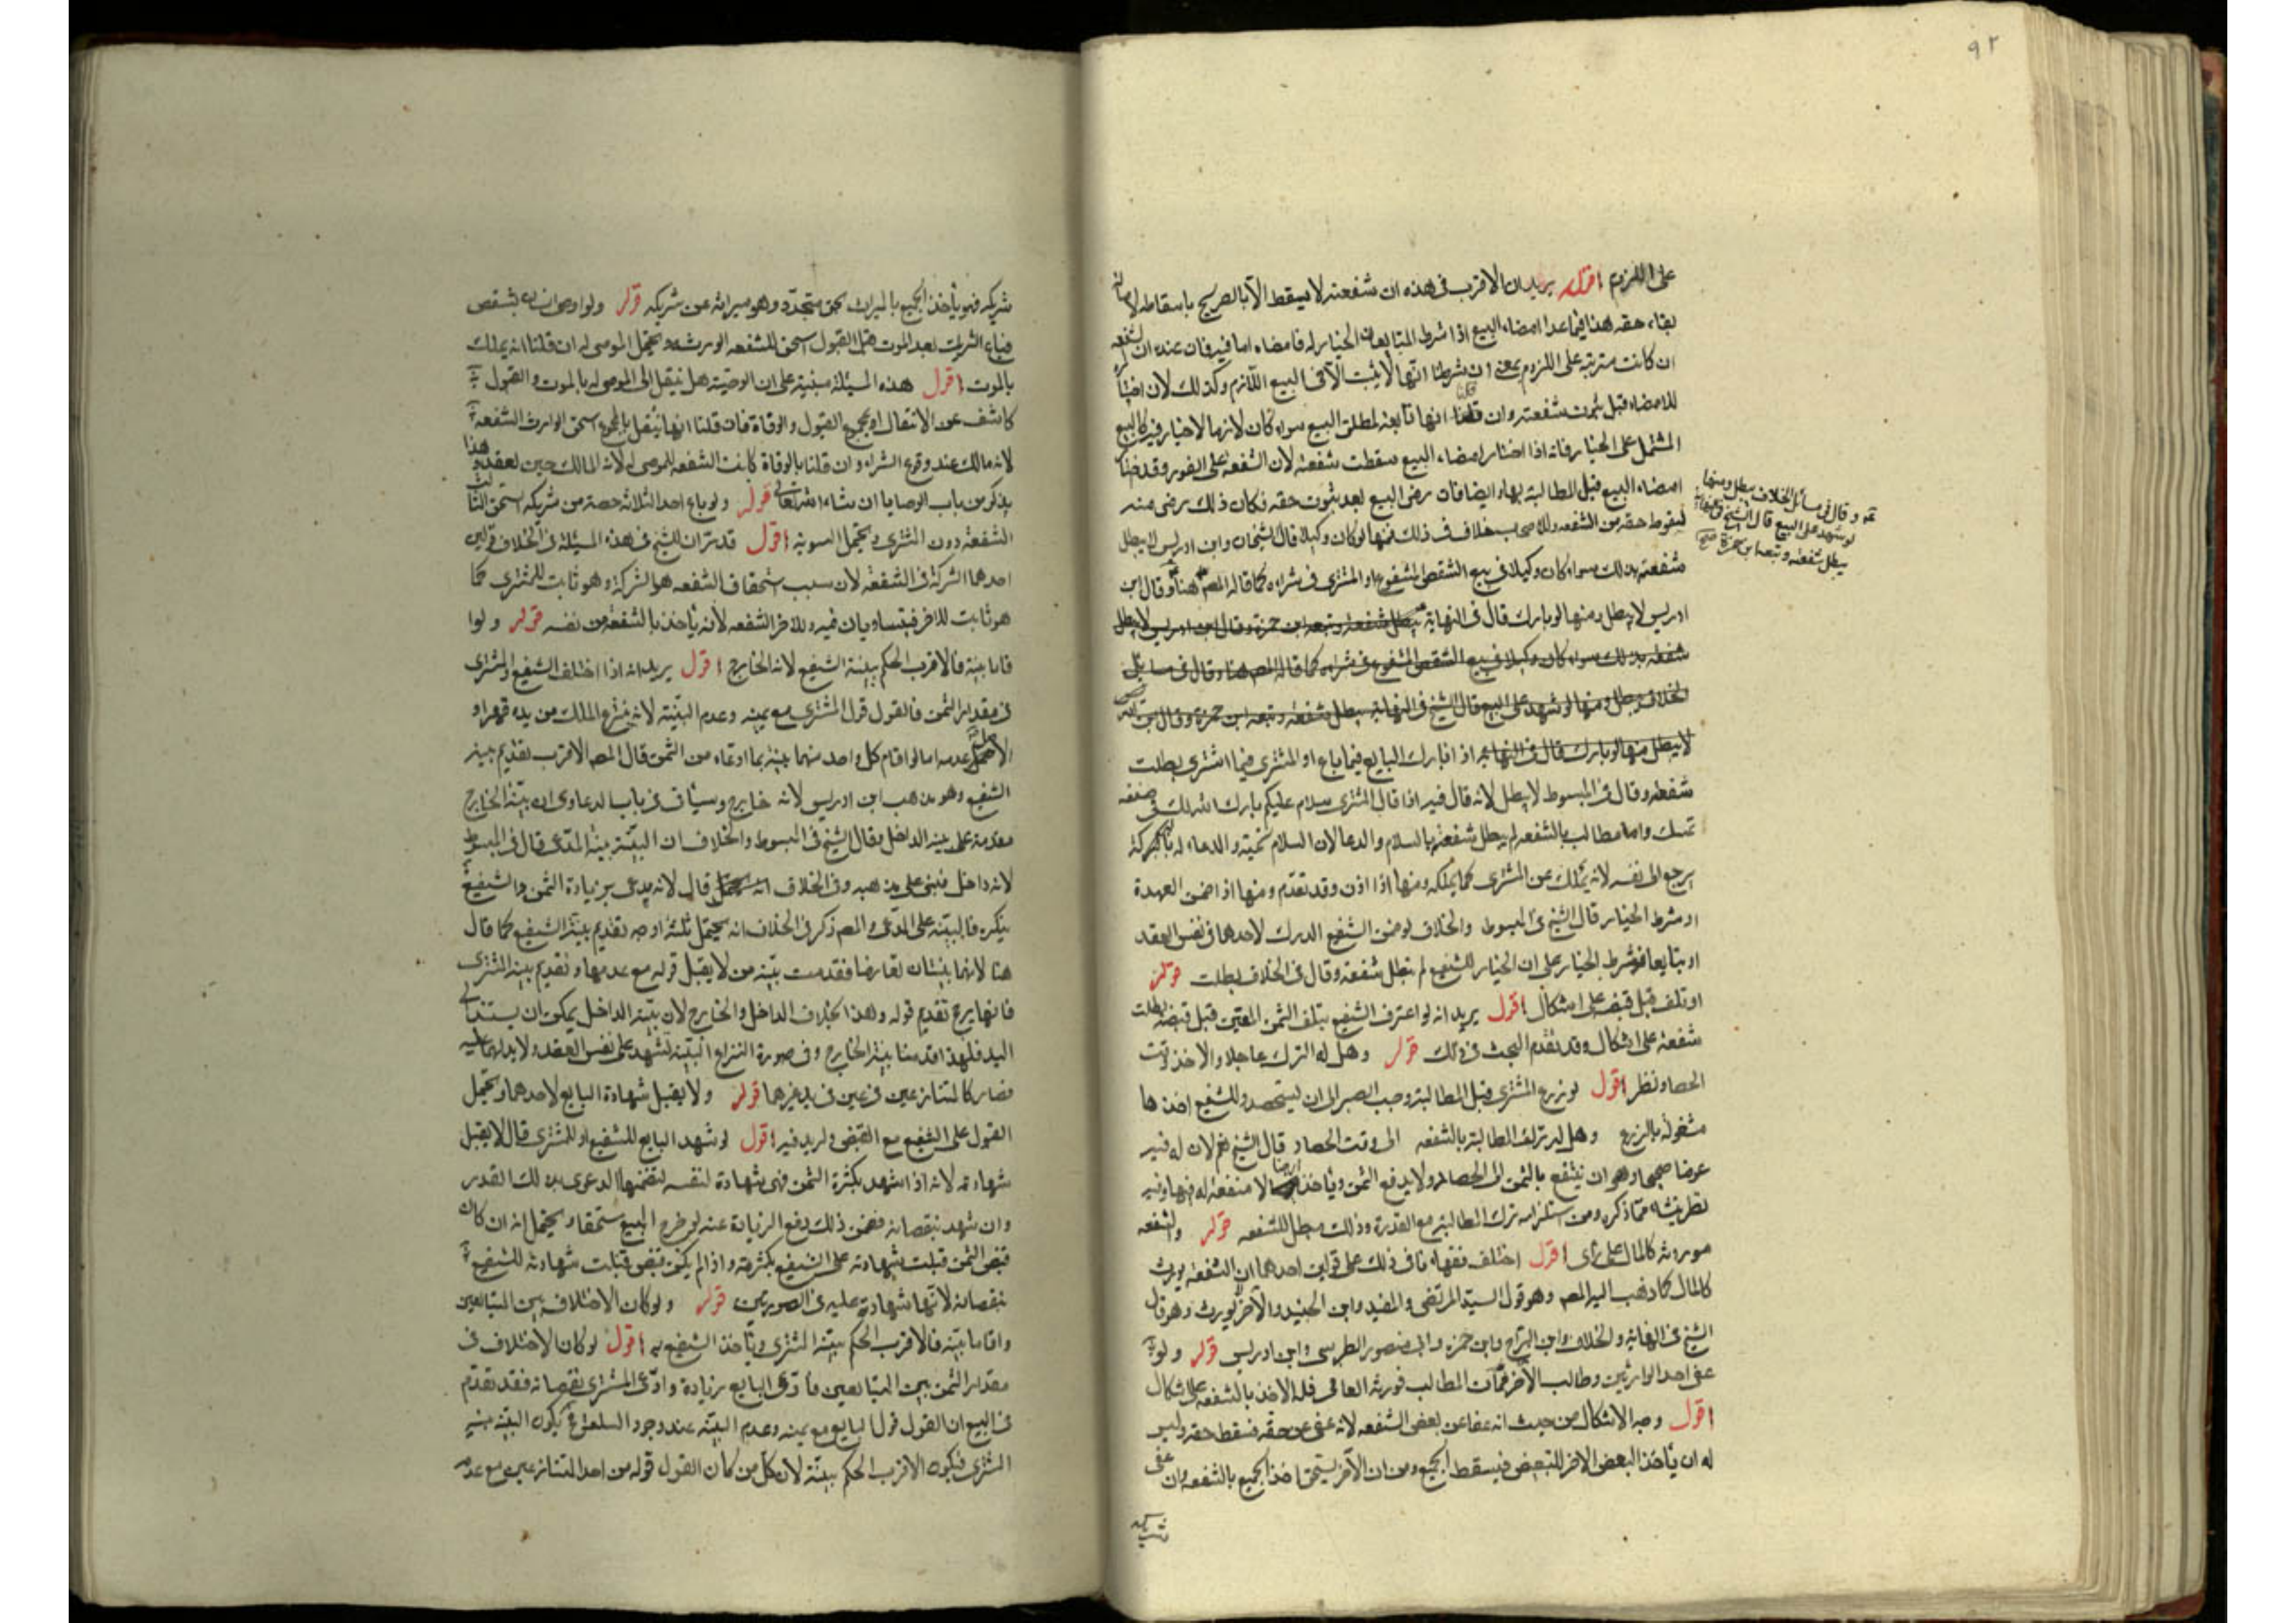 ٩٢
على اللزوم اقول يريد ان الاقرب في هذه ان شفعته لا يسقط الا بالصريح باسقاطه لاصالة
بقاء حقه هذا فيما عدا امضاء البيع اذا شرط المتبايعان الخيار له فامضاه اما فيه فان عنده ان الشفعه
ان كانت مترتبة على اللزوم بمعنى ان شرطنا انها لا يثبت الا في البيع اللازم وكذلك لان اختياره
للامضاء قبل ثبوت شفعته وان قلنا انها تابعة لمطلق البيع سواء كان لازما لا خيار فيه كالبيع
المشتمل على الخيار فانه اذا اختار امضاء البيع سقطت شفعته لان الشفعه على الفور وقد اختار
امضاء البيع قبل المطالبة بها وايضا فان رضى البيع بعد ثبوت حقه فكان ذلك رضى منه
لسقوط حقه من الشفعه وللاصحاب خلاف في ذلك فمنها لو كان وكيلا قال الشيخان وابن ادريس لا يبطل
شفعته بذلك سواء كان وكيلا في بيع الشقص المشفوع او المشترى في شرائه كما قاله المصـ هنا وقال ابن
ادريس لا يبطل ومنها لو بارك قال في النهاية يبطل شفعته وتبعه ابن حمزة وقال ابن ادريس لا يبطل
شفعته بذلك سواء كان وكيلا في بيع الشقص المشفوع في شرائه كما قاله المصـ هنا وقال في مسائل
الخلاف يبطل ومنها لو شهد على البيع قال الشيخ في النهاية يبطل شفعته وتبعه ابن حمزة وقال ابن ادريس
لا يبطل منها لو بارك قال في النهاية اذا بارك البايع فيما باع او المشترى فيما اشترى بطلت
شفعته وقال في المبسوط لا يبطل لانه قال فيه اذا قال المشترى سلام عليكم بارك الله لك في صفقة
يمينك وانا مطالب بالشفعه لم يبطل شفعته بالسلام والدعا لان السلام تحية والدعاء له بالبركة
يرجع الى نفسه لانه يملك عن المشترى كما يملكه ومنها اذا اذن وقد تقدم ومنها اذا ضمن العهدة
او شرط الخيار قال الشيخ في المبسوط والخلاف لو ضمن الشفيع الدرك لاحدهما في نفس العقد
او تبايعا بشرط الخيار على ان الخيار للشفيع لم تبطل شفعته وقال في الخلاف بطلت قوله
او تلف قبل قبضه على اشكال اقول يريد انه لو اعترف الشفيع بتلف الثمن المعين قبل قبضه بطلت
شفعته على اشكال وقد تقدم البحث في ذلك قوله وهل له الترك عاجلا والاخذ وقت
الحصاد نظر اقول لو زرع المشترى قبل المطالبة وجب الصبر الى ان يستحصد وللشفيع اخذها
مشغولة بالزرع وهل له ترك المطالبة بالشفعه الى وقت الحصاد قال الشيخ نعم لان له فيه
غرضا صحيحا وهو ان ينتفع بالثمن الى الحصاد ولا يدفع الثمن ويأخذ ارضا لا منفعة له فيها وفيه
نظر ينشاء مما ذكره ومن استلزامه ترك المطالبة مع القدرة وذلك مبطل للشفعه قوله والشفعه
موروثة كالمال على رأى اقول اختلف فقهاؤنا في ذلك على قولين احدهما ان الشفعه يورث
كالمال كما ذهب اليه المصـ وهو قول السيد المرتضى والمفيد وابن الجنيد والآخر لا يورث وهو قول
الشيخ في النهاية والخلاف وابن البراج وابن حمزه وابى منصور الطبرسى وابن ادريس قوله ولو
عفى احد الوارثين وطالب الآخر فمات المطالب فورثه العافى فله الاخذ بالشفعه على اشكال
اقول وجه الاشكال من حيث انه عفا عن بعض الشفعه لانه عفى عن حقه فسقط حقه وليس
له ان يأخذ البعض الاخر للتبعيض فيسقط الجميع ومن ان الآخر يستحق اخذ الجميع بالشفعه وان عفى
وقال في مسائل الخلاف يبطل ومنها
لو شهد على البيع قال الشيخ في النهاية
يبطل شفعته وتبعه ابن حمزة صح
شريكه
شريكه فهو يأخذ الجميع بالميراث بحق متجدد وهو ميراثه عن شريكه قوله ولو اوصى انسان بشقص
فباع الشريك بعد الموت قبل القبول استحق الشفعه الورثة ويحتمل الموصى له ان قلنا انه يملك
بالموت اقول هذه المسئلة مبنية على ان الوصية هل ينتقل الى الموصى له بالموت والقبول
كاشف عن الانتقال او بمجموع القبول والوفاة فان قلنا انها ينتقل بالمجموع استحق الوارث الشفعة
لانه مالك عند وقوع الشراء وان قلنا بالوفاة كانت الشفعه للموصى له لانه المالك حين العقد وهذا
يذكر من باب الوصايا ان شاء الله تعالى قوله ولو باع احد الثلاثه حصته من شريكه استحق الثالث
الشفعة دون المشترى ويحتمل التسوية اقول قد مر ان للشيخ في هذه المسئلة في الخلاف قولين
احدهما الشركة في الشفعة لان سبب استحقاق الشفعه هو الشركة وهو ثابت للمشترى كما
هو ثابت للاخر فيتساويان فيه وللاخر الشفعه لانه يأخذ بالشفعة من نفسه قوله ولو
اقاما بينة فالاقرب الحكم ببينة الشفيع لانه الخارج اقول يريد انه اذا اختلف الشفيع والمشترى
في مقدار الثمن فالقول قول المشترى مع يمينه وعدم البينة لانه ينتزع الملك من يده قهرا و
الاصل عدمه اما لو اقام كل واحد منهما بينة بما ادعاه من الثمن قال المصـ الاقرب تقديم بينة
الشفيع وهو مذهب ابن ادريس لانه خارج وسيأتى في باب الدعاوى ان بينة الخارج
مقدمة على بينة الداخل وقال الشيخ في المبسوط والخلاف ان البينة بينة المدعى قال في المبسوط
لانه داخل فبنى على مذهبه وفي الخلاف قال لانه يدعى زيادة الثمن والشفيع
ينكره فالبينة على المدعى والمصـ ذكر في الخلاف انه يحتمل ثلثة اوجه تقديم بينة الشفيع كما قال
هنا لانهما بينتان تعارضتا فقدمت بينة من لا يقبل قوله مع عدمها وتقديم بينة المشترى
فانها يرجح تقديم قوله وهذا بخلاف الداخل والخارج لان بينة الداخل يمكن ان يستند الى
اليد فلهذا قدمنا بينة الخارج وفي صورة النزاع البينة تشهد على نفس العقد ولا يد لهما عليه
فصار كالمتنازعين في عين في يد غيرهما قوله ولا يقبل شهادة البايع لاحدهما ويحتمل
القبول على الشفيع مع القبض وله بدونه اقول لو شهد البايع للشفيع او للمشترى قال لا يقبل
شهادته لانه اذا شهد بكثرة الثمن فهى شهادة لنفسه لتضمنها الدعوى بذلك القدر
وان شهد بنقصانه فضمن ذلك دفع الزيادة عنه لو خرج المبيع مستحقا ويحتمل انه ان كان
قبض الثمن قبلت شهادته على الشفيع بكثرته واذا لم يكن قبض قبلت شهادته للشفيع
بنقصانه لانها شهادة عليه في الصورتين قوله ولو كان الاختلاف بين المتبايعين
واقاما بينة فالاقرب الحكم ببينة المشترى ويأخذ الشفيع به اقول لو كان الاختلاف في
مقدار الثمن بين المتبايعين فادعى البايع زيادة وادعى المشترى نقصانه فقد تقدم
في البيع ان القول قول البايع مع يمينه وعدم البينة عند وجود السلعة فيكون البينة بينة
المشترى فيكون الاقرب الحكم ببينته لان كل من كان القول قوله من احد المتنازعين مع عدم